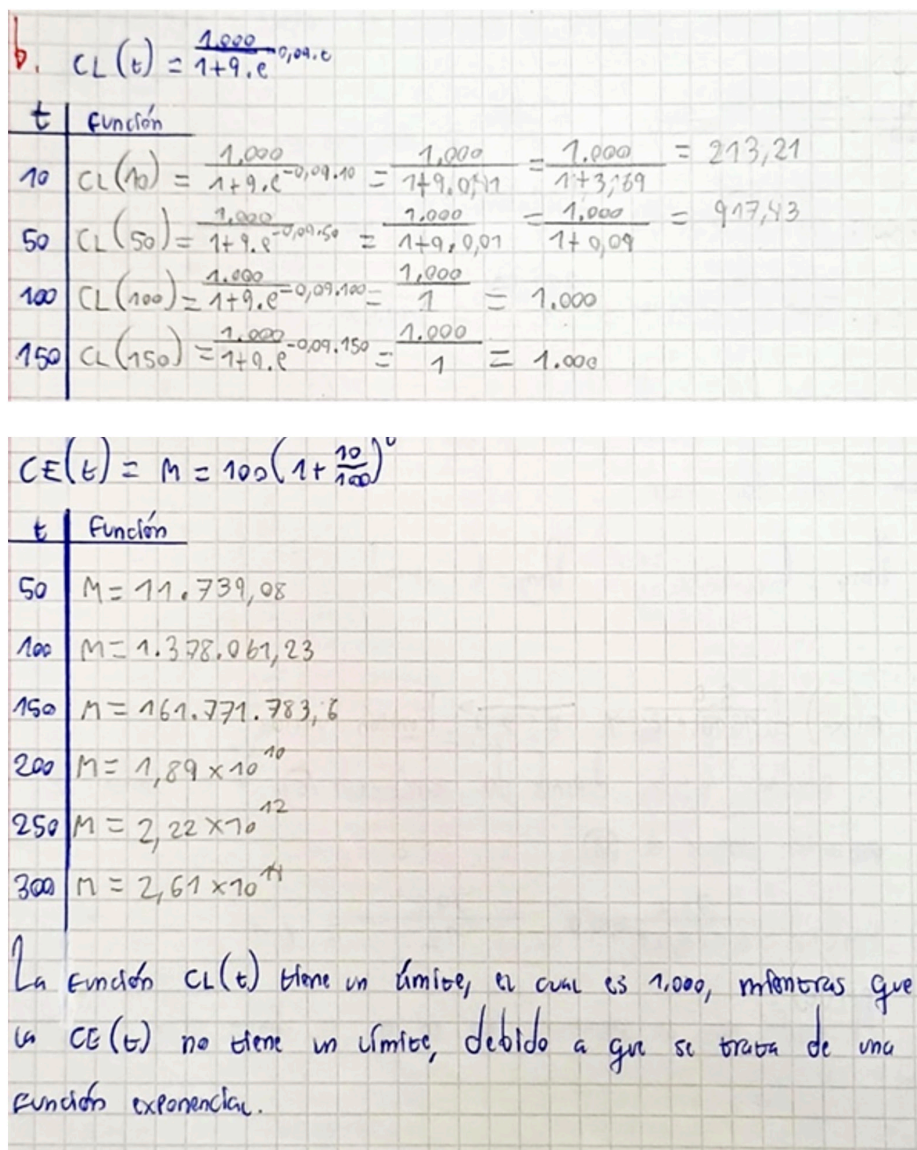 b. CL(t) = 1.000 / 1+9.e^-0,09.t
t | Función
10 | CL(10) = 1.000 / 1+9.e^-0,09.10 = 1.000 / 1+9.0,41 = 1.000 / 1+3,69 = 213,21
50 | CL(50) = 1.000 / 1+9.e^-0,09.50 = 1.000 / 1+9.0,01 = 1.000 / 1+0,09 = 917,43
100 | CL(100) = 1.000 / 1+9.e^-0,09.100 = 1.000 / 1 = 1.000
150 | CL(150) = 1.000 / 1+9.e^-0,09.150 = 1.000 / 1 = 1.000
CE(t) = M = 100(1+10/100)
t | Función
50 | M = 11.739,08
100 | M = 1.378.061,23
150 | M = 161.771.783,6
200 | M = 1,89 x 10^10
250 | M = 2,22 x 10^12
300 | M = 2,61 x 10^14
La función CL(t) tiene un límite, el cual es 1.000, mientras que
la CE(t) no tiene un límite, debido a que se trata de una
función exponencial.